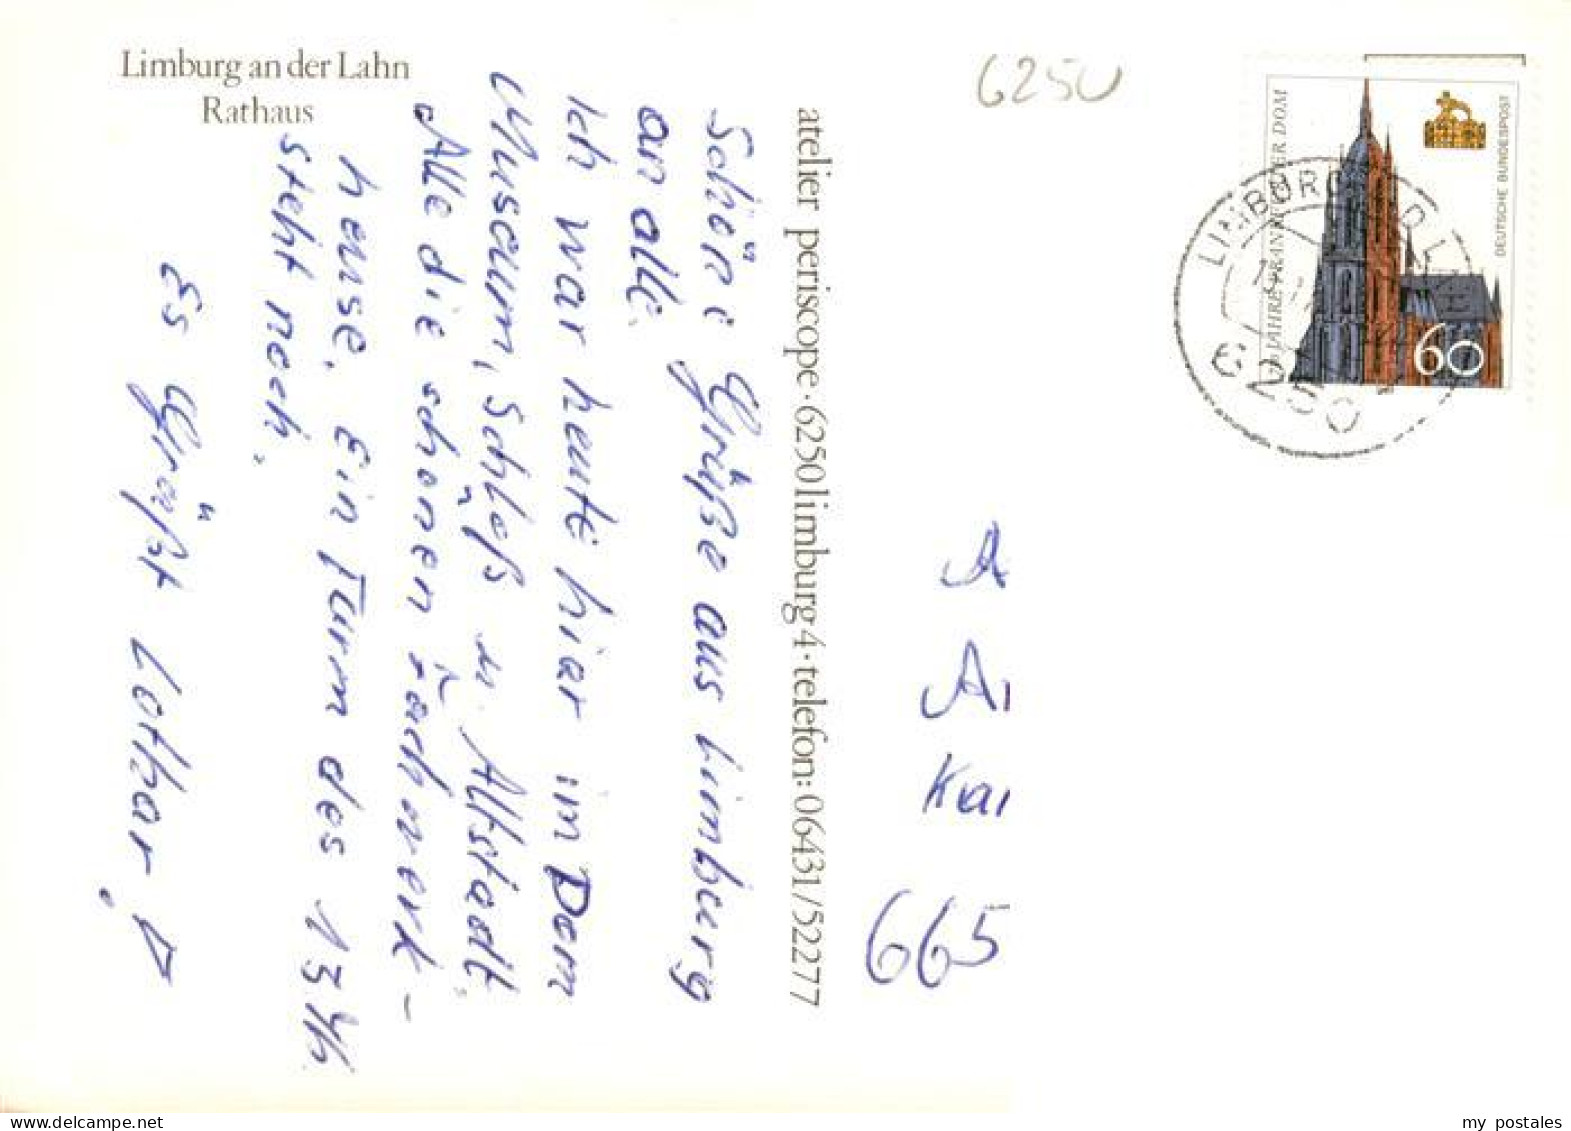 Limburg an der Lahn
Rathaus
6250
Schöne Grüße aus Limburg
an alle.
Ich war heute hier im Dom
Museum, Schloß u. Altstadt.
Alle die schönen Fachwerk-
heuse. Ein Turm des 13 Jh.
steht noch.
Es Grüßt Lothar,
atelier periscope · 6250 limburg 4 · telefon: 06431/52277
JAHRE FRANKFURTER DOM
DEUTSCHE BUNDESPOST
60
LIMBURG
6250
A
Ar
Kar
665
my_postales